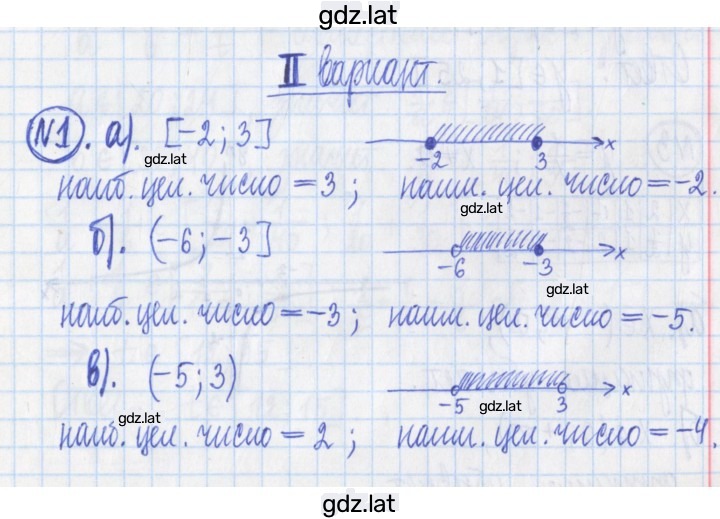 gdz.lat
II вариант.
№1. а). [-2; 3] -2 3 x
gdz.lat
наиб. цел. число = 3 ; наим. цел. число = -2.
gdz.lat
б). (-6; -3] -6 -3 x
gdz.lat
наиб. цел. число = -3 ; наим. цел. число = -5.
в). (-5; 3) -5 3 x
gdz.lat gdz.lat
наиб. цел. число = 2 ; наим. цел. число = -4.
gdz.lat